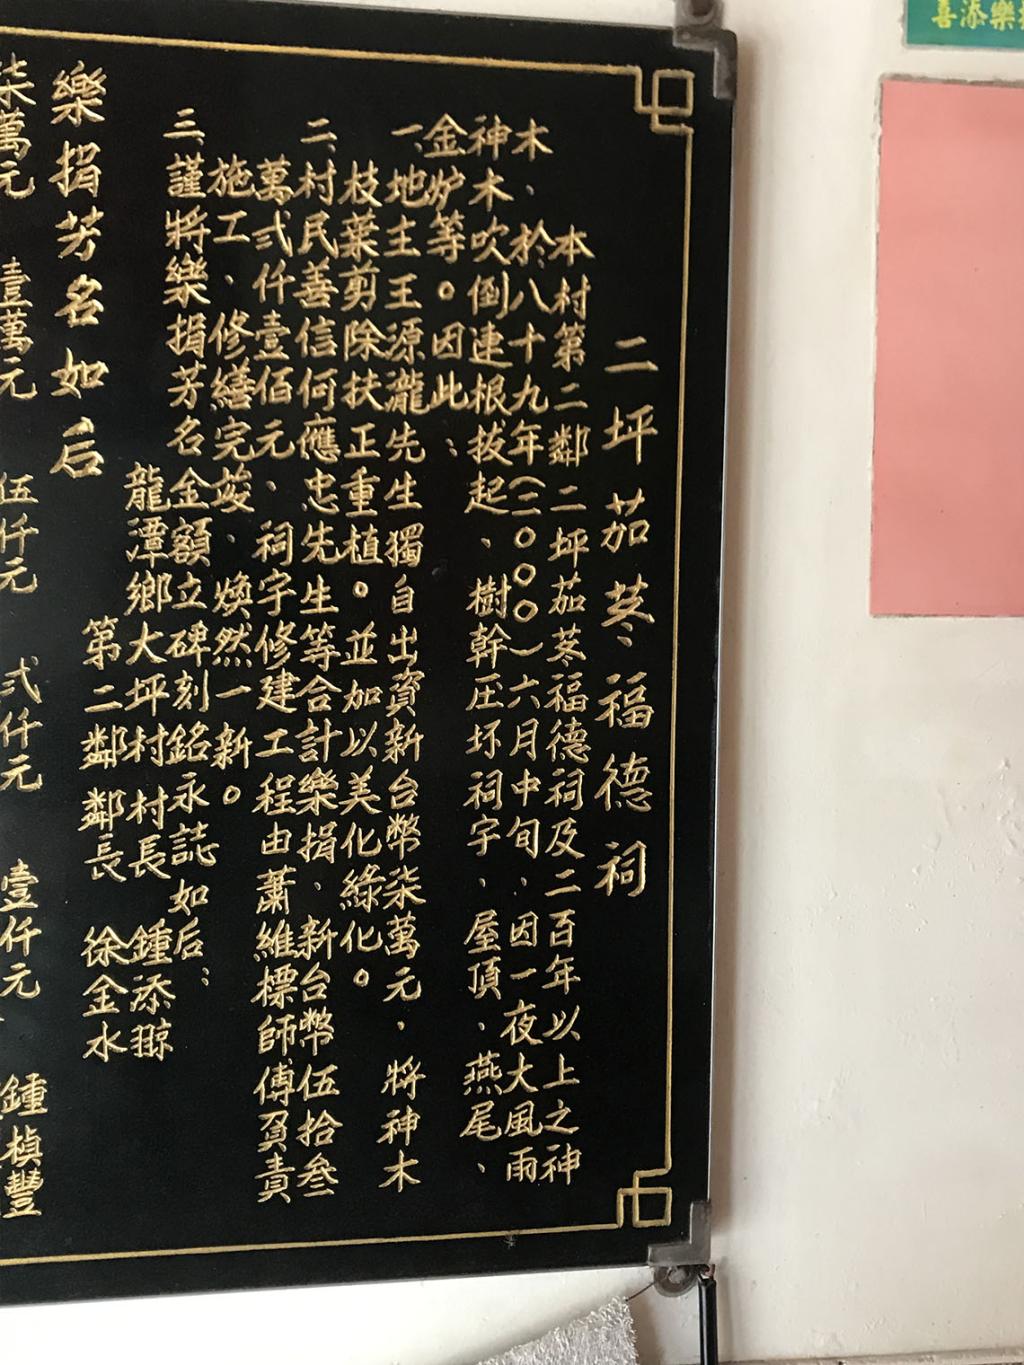 喜添樂
二坪茄苳福德祠
本村第二鄰二坪茄苳福德祠及二百年以上之神
木、於八十九年(二〇〇〇)六月中旬、因一夜大風雨
神木吹倒連根拔起、樹幹压坏祠宇、屋頂、燕尾、
金炉等。因此:
一、地主王源瀧先生獨自出資新台幣柒萬元,將神木
枝葉剪除扶正重植。並加以美化綠化。
二、村民善信何應忠先生等合計樂捐、新台幣伍拾叁
萬弍仟壹佰元、祠宇修建工程由蕭維標師傅負責
施工、修繕完竣、煥然一新。
三、謹將樂捐芳名金額立碑刻銘永誌如后:
龍潭鄉大坪村村長 鍾添
第二鄰鄰長 徐金水
樂捐芳名如后
柒萬元 壹萬元 伍仟元 弍仟元 壹仟元 鍾楨豐